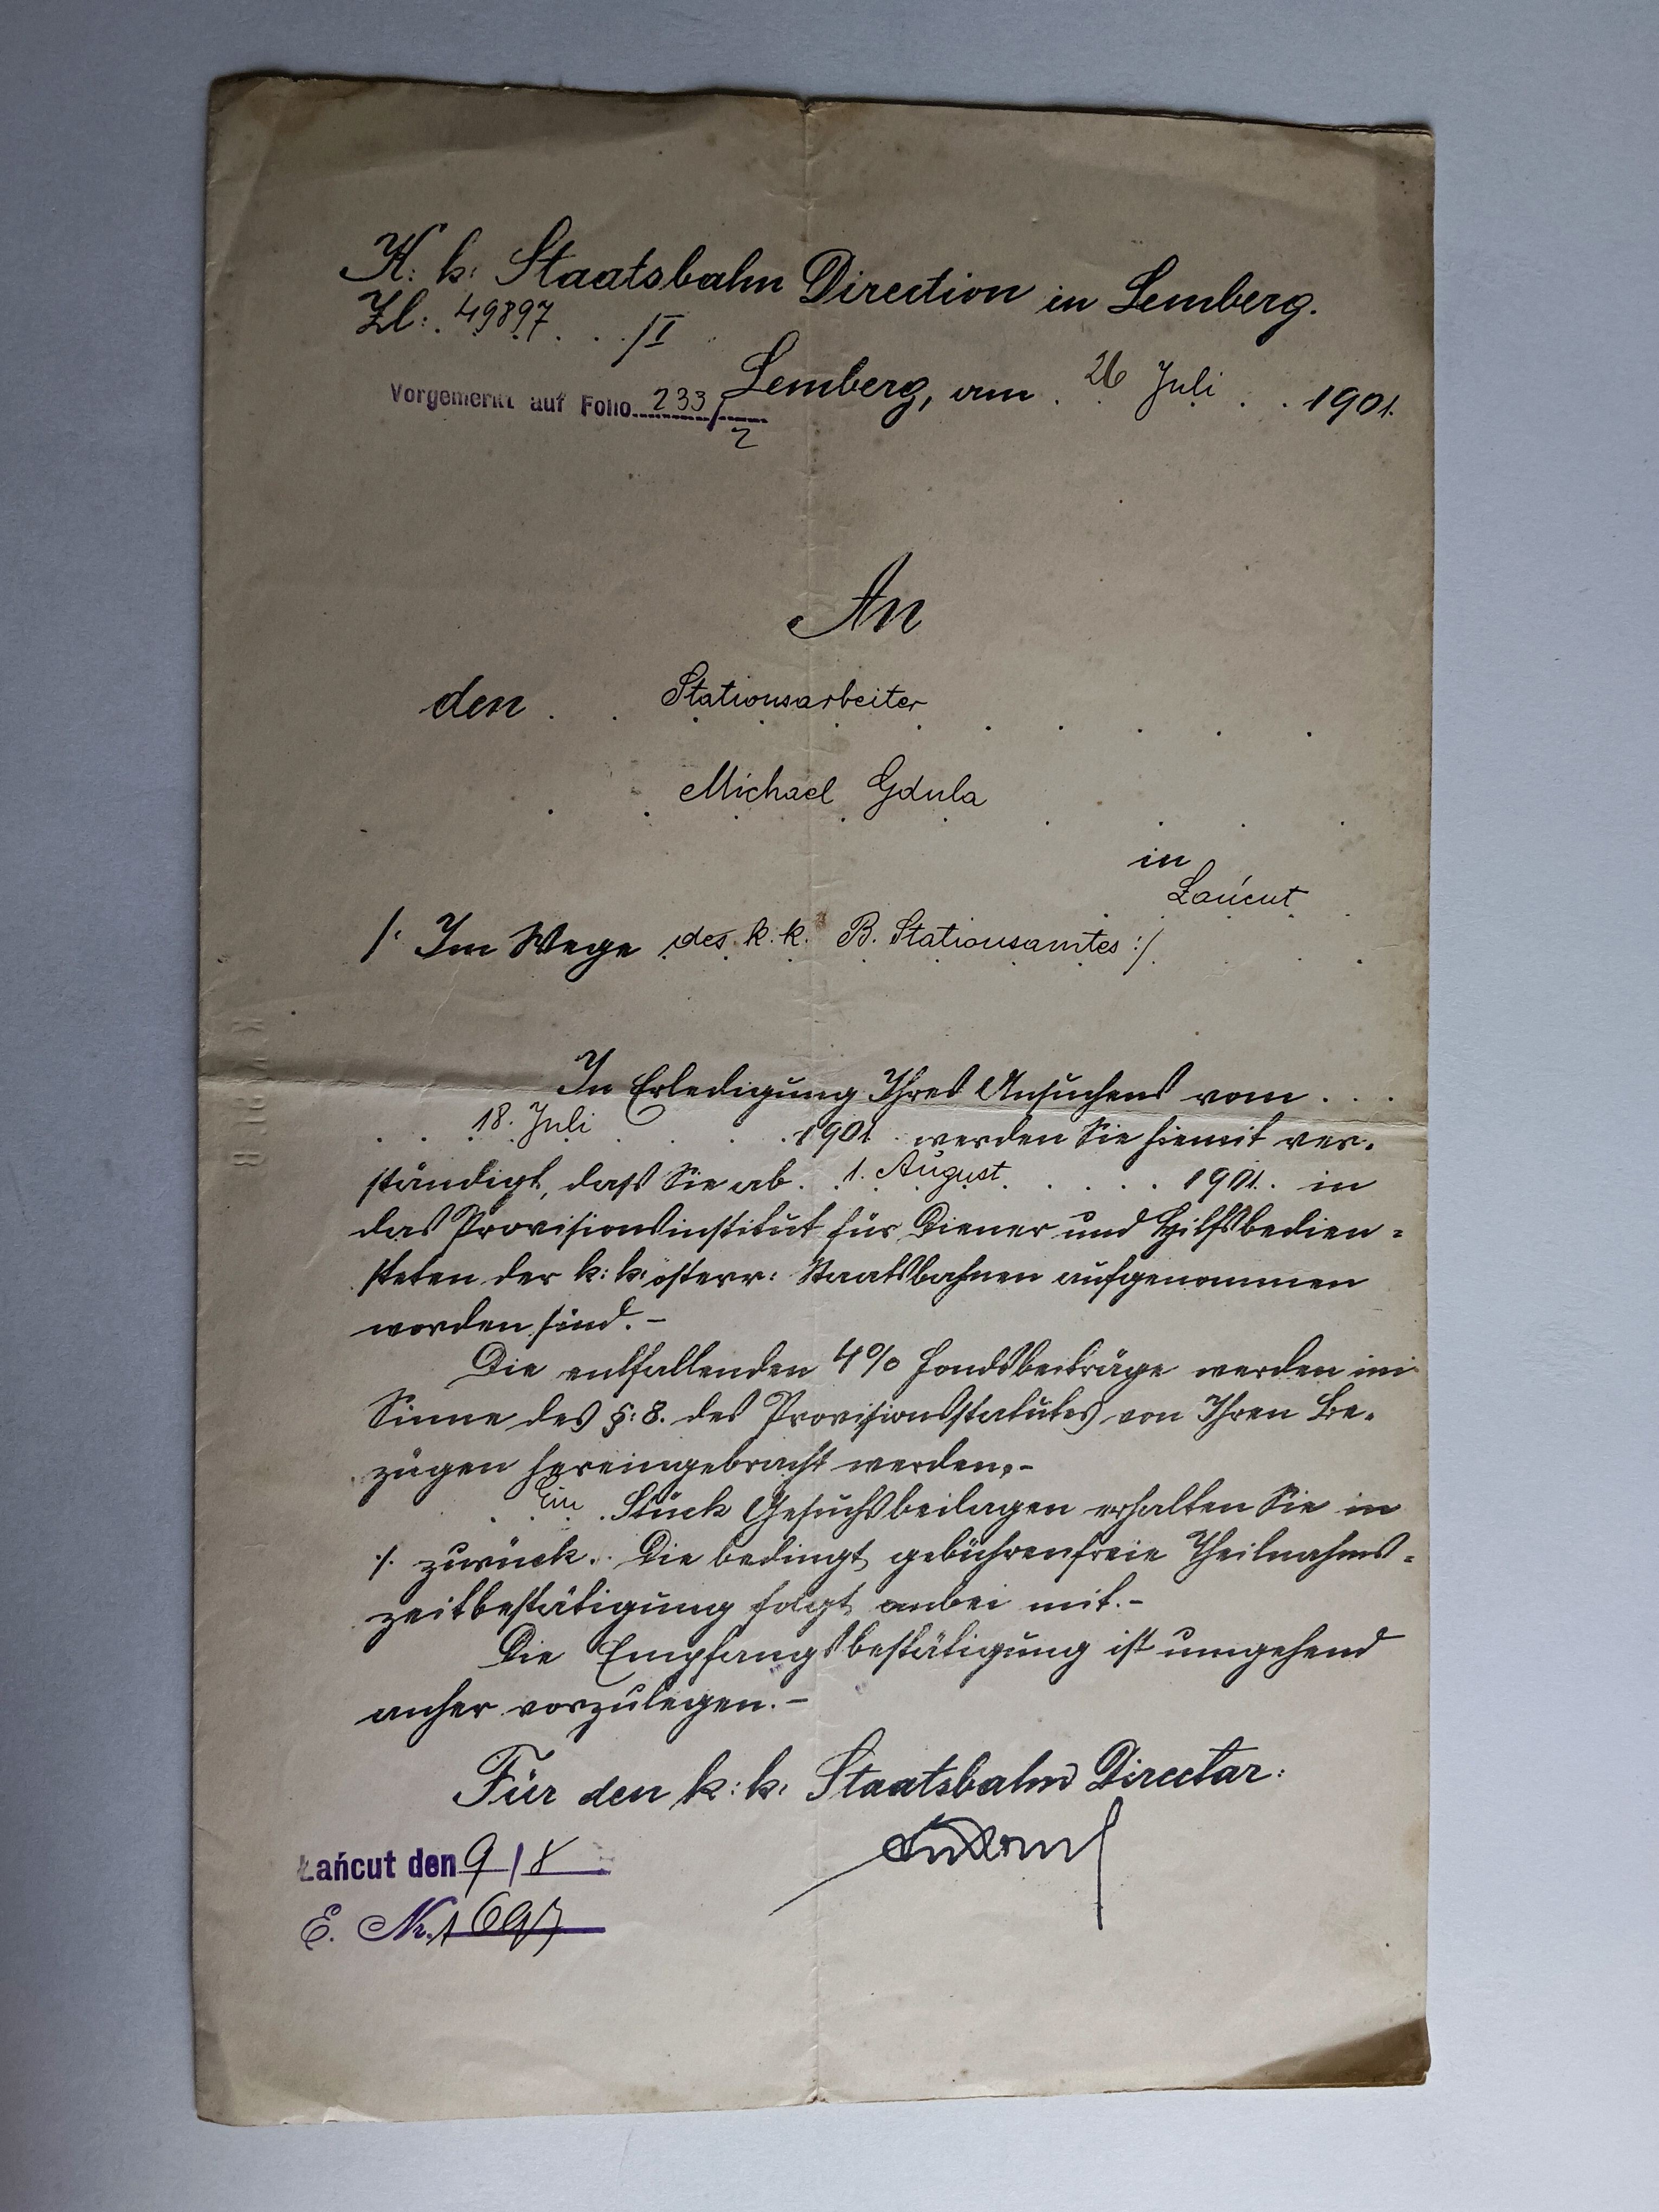 K. k. Staatsbahn Direction in Lemberg.
Zl: 49897 /I
Lemberg, am 26 Juli 1901.
Vorgemerkt auf Folio 233/2
An
den Stationsarbeiter
Michael Gdula
in
Łańcut
/: Im Wege des k. k. B. Stationsamtes :/
In Erledigung Ihres Ansuchens vom
18. Juli 1901. werden Sie hiemit ver-
ständigt, daß Sie ab 1. August 1901. in
das Provisionsinstitut für Diener und Hilfsbedien=
steten der k: k: österr: Staatsbahnen aufgenommen
worden sind.-
Die entfallenden 4% Fondsbeiträge werden im
Sinne des §: 8. des Provisionsstatutes von Ihren Be-
zügen hereingebracht werden.-
Ein Stück Gesuchsbeilagen erhalten Sie in
/. zurück. Die bedingt gebührenfreie Theilnahms=
zeitbestätigung folgt anbei mit.-
Die Empfangsbestätigung ist umgehend
anher vorzulegen.-
Für den k: k: Staatsbahn Director:
Łańcut den 9/8
E. Nr. 1697